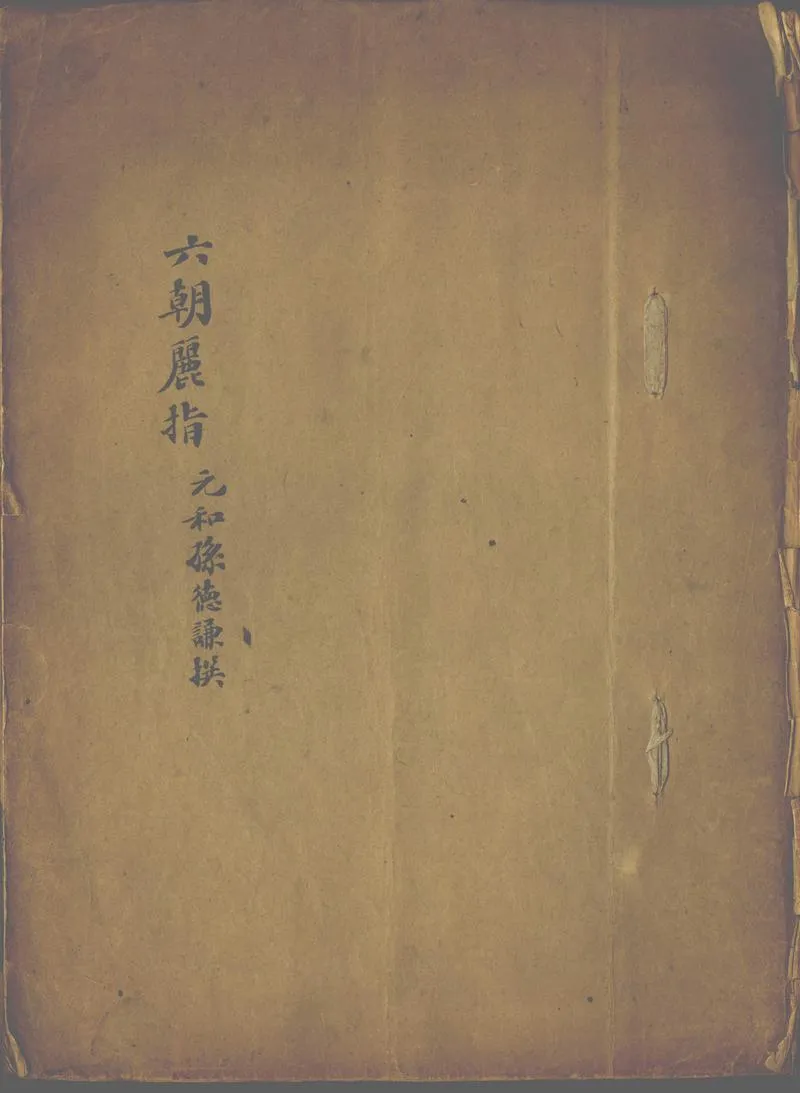 六朝麗指
元和孫德謙撰